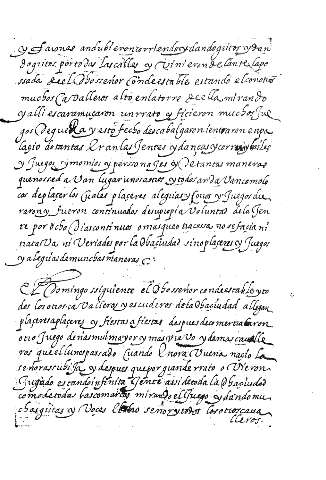 y faiones andubieron corriendo y dando gritos y dan
do gritos por todas las calles y vinieron delante la po
sada del dho señor condestable estando el con otros
muchos cavalleros alto en la torre della mirando
y alli escaramuçaron un rrato y ficieron muchos jue
gos de guerra y esto fecho descabalgaron entraron en pa
lacio do tantas eran las gentes y danças y
y juegos y momos y personajes y de tantas maneras
que nose davan lugar unos a otros y todo arda van como lo
cos de placer los cuales placeres alegrias y juegos du
raron y fueron continuados de su propia voluntad de la jen
te por ocho dias continuos o mas que otra cosa no se facia ni
tratava ni veriades por la dha ciudad sino placeres y juegos
y alegrias de muchas maneras
El Domingo siguiente el dho señor condestable y to
dos los otros cavalleros y escuderos de la dha ciudad allegan
plaçeres a plaçeres y fiestas a fiestas despues de comer
otro juego de mas mui mayor y mas que vo y demas cavalle
ros que el lunes pasado cuando en ora buena naçio la
señora su hija y despues que por grande rrato o vieron
jugado estando infinita gente assi de toda la dha ciudad
como de todas las comarcas mirando el juego y dando mu
chas gritas y voces el dho señor y todos los otros cava
lleros.